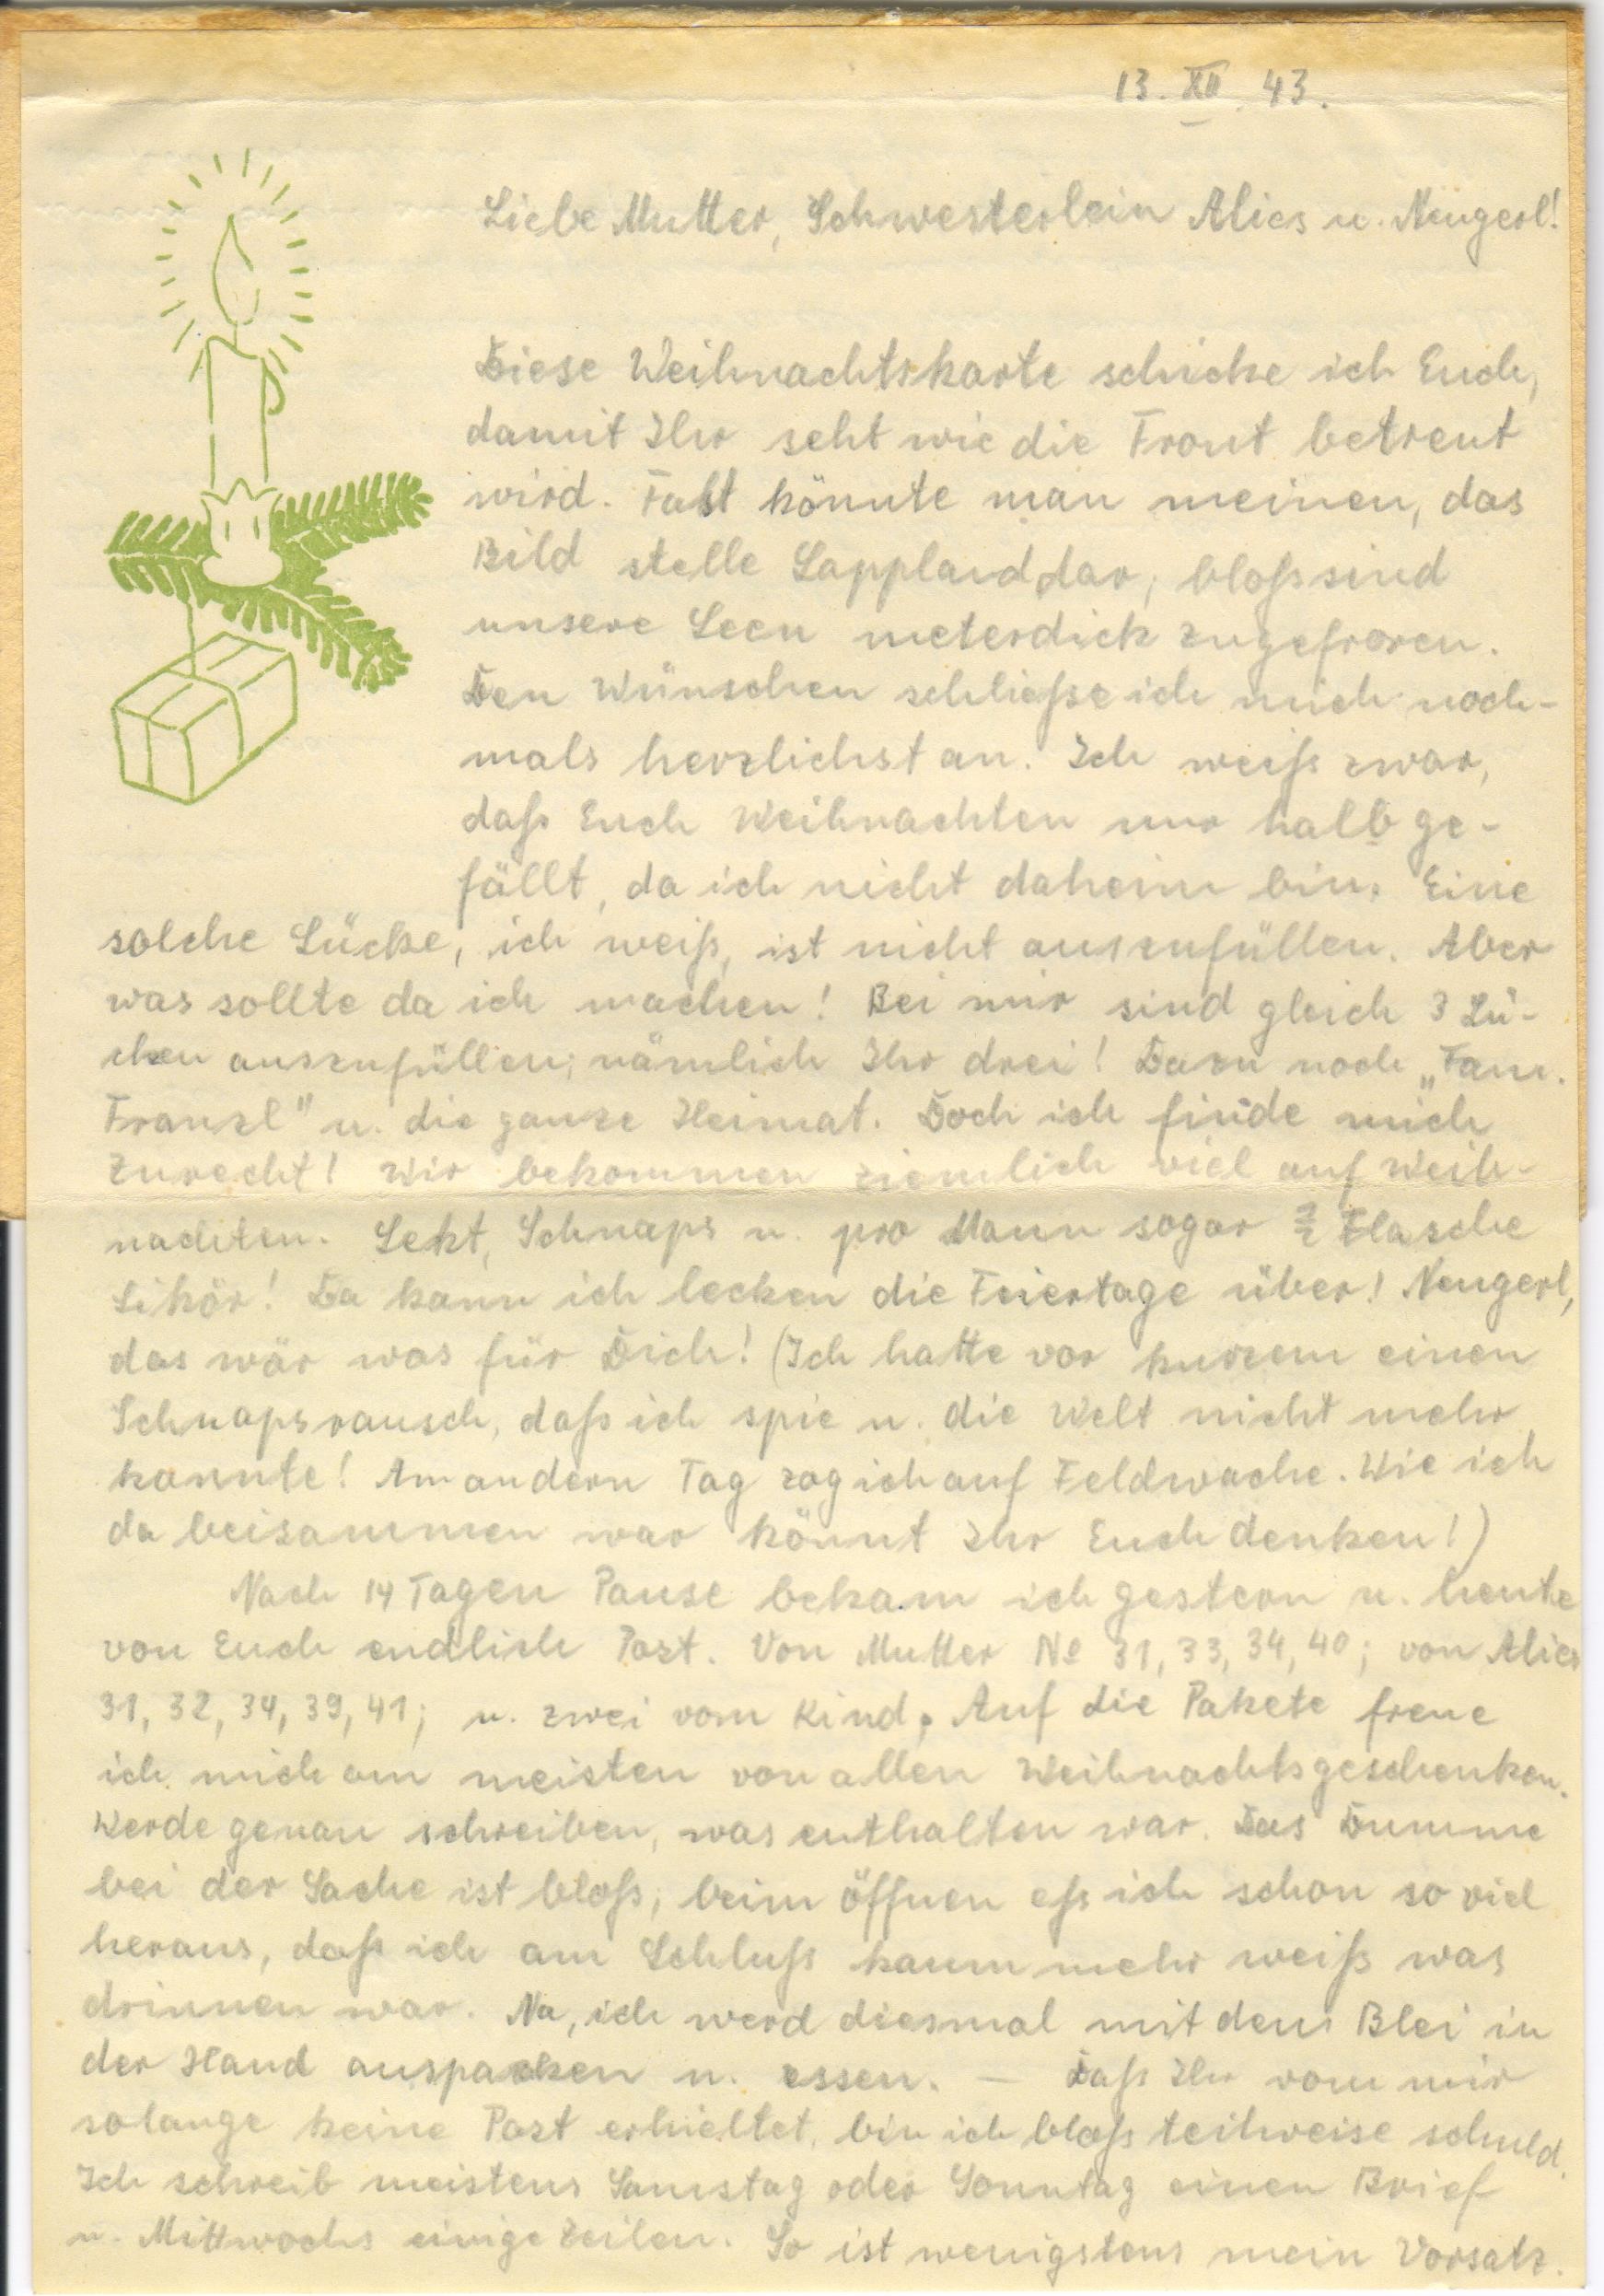 13. XII. 43.
Liebe Mutter, Schwesterlein Alies u. Neugerl!
Diese Weihnachtskarte schicke ich Euch,
damit Ihr seht wie die Front betreut
wird. Fast könnte man meinen, das
Bild stelle Lappland dar, bloß sind
unsere Seen meterdick zugefroren.
Den Wünschen schließe ich mich noch-
mals herzlichst an. Ich weiß zwar,
daß Euch Weihnachten nur halb ge-
fällt, da ich nicht daheim bin. Eine
solche Lücke, ich weiß, ist nicht auszufüllen. Aber
was sollte da ich machen! Bei mir sind gleich 3 Lü-
cken auszufüllen; nämlich Ihr drei! Dazu noch „Fam.
Franzl" u. die ganze Heimat. Doch ich finde mich
zurecht! Wir bekommen ziemlich viel auf Weih-
nachten. Sekt, Schnaps u. pro Mann sogar Flasche
Likör! Da kann ich lecken die Feiertage über! Neugerl,
das wär was für Dich! (Ich hatte vor kurzem einen
Schnapsrausch, daß ich spie u. die Welt nicht mehr
kannte! Am andern Tag zog ich auf Feldwache. Wie ich
da beisammen war könnt Ihr Euch denken!)
Nach 14 Tagen Pause bekam ich gestern u. heute
von Euch endlich Post. Von Mutter № 31, 33, 34, 40; von Alies
31, 32, 34, 39, 41; u. zwei vom Kind. Auf die Pakete freue
ich mich am meisten von allen Weihnachtsgeschenken.
Werde genau schreiben, was enthalten war. Das Dumme
bei der Sache ist bloß, beim öffnen eß ich schon so viel
heraus, daß ich am Schluß kaum mehr weiß was
drinnen war. Na, ich werd diesmal mit dem Blei in
der Hand auspacken u. essen. — Daß Ihr vom mir
solange keine Post erhieltet, bin ich bloß teilweise schuld.
Ich schreib meistens Samstag oder Sonntag einen Brief
u. Mittwochs einige Zeilen. So ist wenigstens mein Vorsatz.